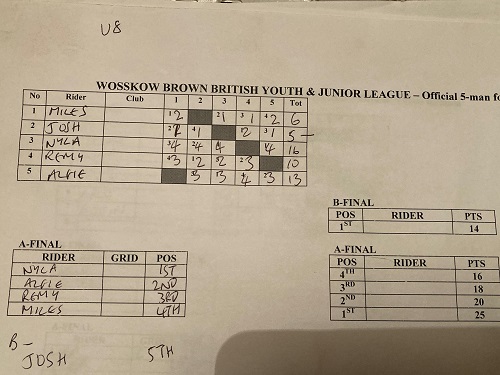 U8
WOSSKOW BROWN BRITISH YOUTH & JUNIOR LEAGUE – Official 5-man fo
No Rider Club 1 2 3 4 5 Tot
1 MILES 1 2 2 1 3 1 4 2 6
2 JOSH 4 1 2 3 1 5 –
3 NYLA 3 4 2 4 4 1 4 16
4 REMY 4 3 1 2 2 3 10
5 ALFIE 3 3 4 2 3 13
B-FINAL
POS RIDER PTS
1ST 14
A-FINAL
RIDER GRID POS
NYLA 1ST
ALFIE 2ND
REMY 3RD
MILES 4TH
A-FINAL
POS RIDER PTS
4TH 16
3RD 18
2ND 20
1ST 25
B –
JOSH 5TH